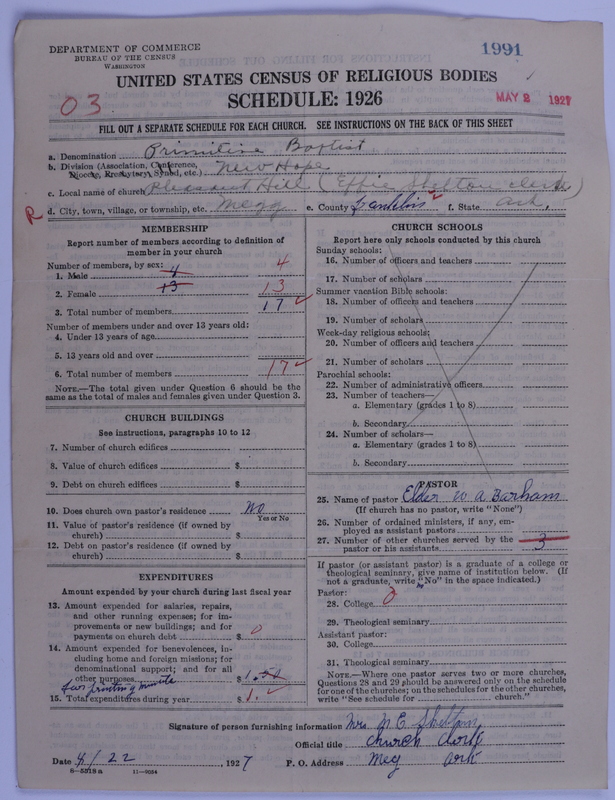 DEPARTMENT OF COMMERCE
BUREAU OF THE CENSUS
WASHINGTON
1991
UNITED STATES CENSUS OF RELIGIOUS BODIES
SCHEDULE: 1926
03
MAY 2 1927
FILL OUT A SEPARATE SCHEDULE FOR EACH CHURCH. SEE INSTRUCTIONS ON THE BACK OF THIS SHEET
a. Denomination Primitive Baptist
b. Division (Association, Conference, Diocese, Presbytery, Synod, etc.) New Hope
c. Local name of church Pleasant Hill (Effie Shelton clerk)
R
d. City, town, village, or township, etc. Megg e. County Franklin f. State Ark.
MEMBERSHIP
Report number of members according to definition of
member in your church
Number of members, by sex:
1. Male 4 4
2. Female 13 13
3. Total number of members 17
Number of members under and over 13 years old:
4. Under 13 years of age
5. 13 years old and over
6. Total number of members 17
NOTE.—The total given under Question 6 should be the
same as the total of males and females given under Question 3.
CHURCH BUILDINGS
See instructions, paragraphs 10 to 12
7. Number of church edifices
8. Value of church edifices $
9. Debt on church edifices $
10. Does church own pastor's residence No
Yes or No
11. Value of pastor's residence (if owned by
church) $
12. Debt on pastor's residence (if owned by
church) $
EXPENDITURES
Amount expended by your church during last fiscal year
13. Amount expended for salaries, repairs,
and other running expenses; for im-
provements or new buildings; and for
payments on church debt $ 0
14. Amount expended for benevolences, in-
cluding home and foreign missions; for
denominational support; and for all
other purposes $ 1.50
for printing minute
15. Total expenditures during year $ 1.
CHURCH SCHOOLS
Report here only schools conducted by this church
Sunday schools:
16. Number of officers and teachers
17. Number of scholars
Summer vacation Bible schools:
18. Number of officers and teachers
19. Number of scholars
Week-day religious schools:
20. Number of officers and teachers
21. Number of scholars
Parochial schools:
22. Number of administrative officers
23. Number of teachers—
a. Elementary (grades 1 to 8)
b. Secondary
24. Number of scholars—
a. Elementary (grades 1 to 8)
b. Secondary
PASTOR
25. Name of pastor Elder W A Barham
(If church has no pastor, write "None")
26. Number of ordained ministers, if any, em-
ployed as assistant pastors
27. Number of other churches served by the
pastor or his assistants 3
If pastor (or assistant pastor) is a graduate of a college or
theological seminary, give name of institution below. (If
not a graduate, write "No" in the space indicated.)
Pastor:
28. College
29. Theological seminary
Assistant pastor:
30. College
31. Theological seminary
NOTE.—Where one pastor serves two or more churches,
Questions 28 and 29 should be answered only on the schedule
for one of the churches; on the schedules for the other churches,
write "See schedule for church."
Signature of person furnishing information Mrs. M E Shelton
Official title Church Clerk
Date 4/22 1927 P. O. Address Meg Ark
8—5518 a 11—9034